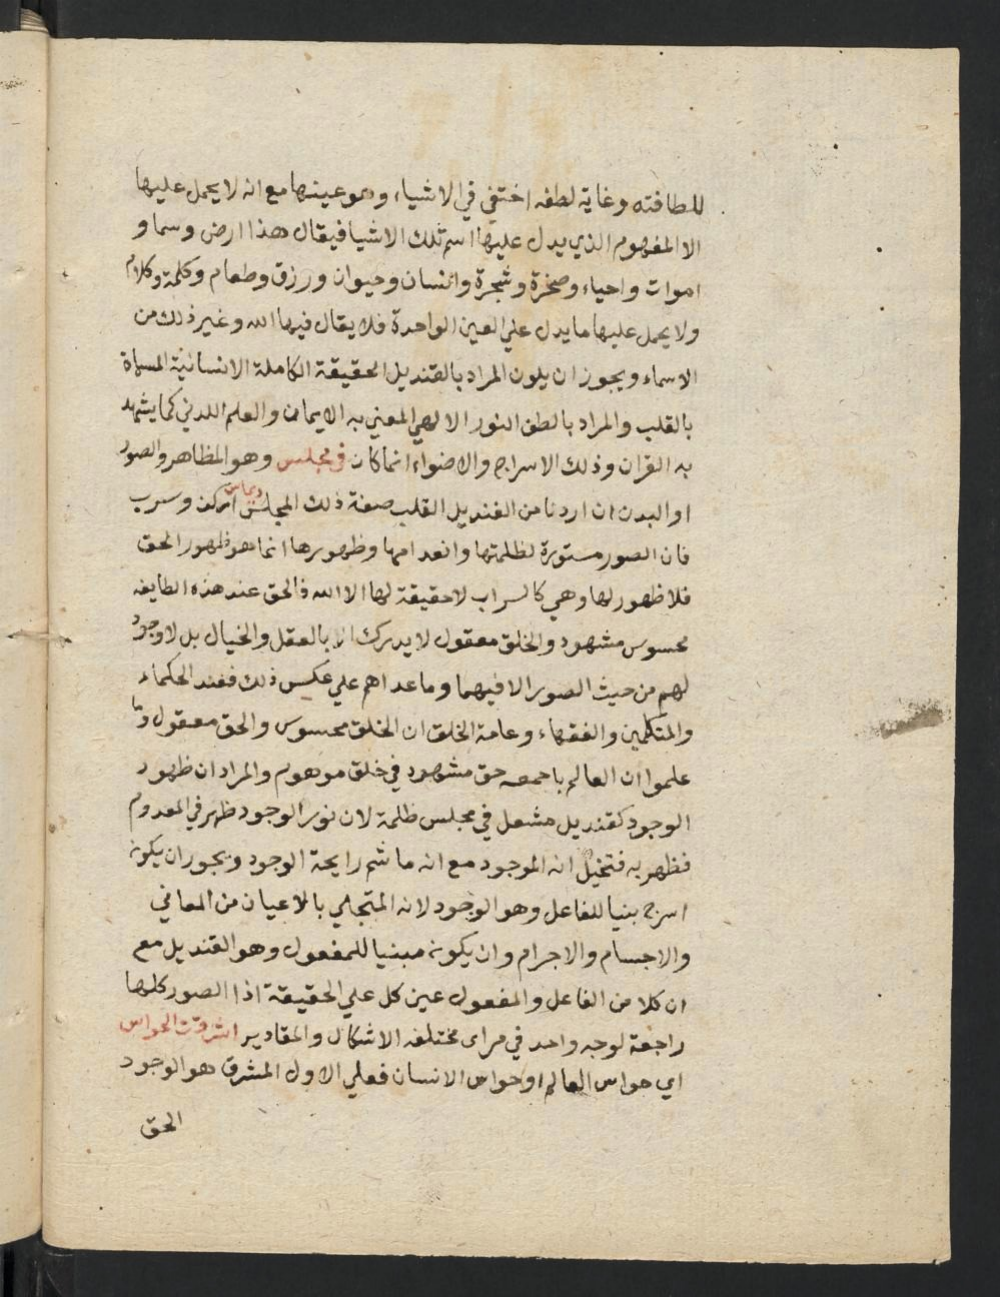 للطافته وغاية لطفه اختفي في الاشياء وهو عينها مع انه لا يحمل عليها
الا المفهوم الذي يدل عليها اسم تلك الاشيا فيقال هذا ارض وسما و
اموات واحياء وصخرة وشجرة وانسان وحيوان ورزق وطعام وكلمة وكلام
ولا يحمل عليها ما يدل علي العين الواحدة فلا يقال فيها الله وغير ذلك من
الاسماء ويجوز ان يكون المراد بالقنديل الحقيقة الكاملة الانسانية المسماة
بالقلب والمراد بالطف النور الالهي المعني به الايمان والعلم اللدني كما يشهد
به القران وذلك الاسراج والاضواء انما كان في مجلس وهو المظاهر والصور
او البدن ان اردنا من القنديل القلب صفة ذلك المجلس ديماس اي كن وسرب
فان الصور مستورة لظلمتها وانعدامها وظهورها انما هو ظهور الحق
فلا ظهور لها وهي كالسراب لا حقيقة لها الا الله فالحق عند هذه الطايفه
محسوس مشهود والخلق معقول لا يدرك الا بالعقل والخيال بل لا وجود
لهم من حيث الصور الا فيهما وما عداهم علي عكس ذلك فعند الحكماء
والمتكلمين والفقهاء وعامة الخلق ان الخلق محسوس والحق معقول وما
علموا ان العالم باجمعه حق مشهود في خلق موهوم والمراد ان ظهور
الوجود كقنديل مشعل في مجلس ظلمة لان نور الوجود ظهر في المعدوم
فظهر به فتخيل انه الموجود مع انه ما شم رايحة الوجود ويجوز ان يكون
اسرج بنيا للفاعل وهو الوجود لانه المتجلي بالاعيان من المعاني
والاجسام والاجرام وان يكون مبنيا للمفعول وهو القنديل مع
ان كلا من الفاعل والمفعول عين كل علي الحقيقة اذا الصور كلها
راجعة لوجه واحد في مراى مختلفه الاشكال والمقادير اشرقت الحواس
اي حواس العالم او حواس الانسان فعلي الاول المشرق هو الوجود
الحق